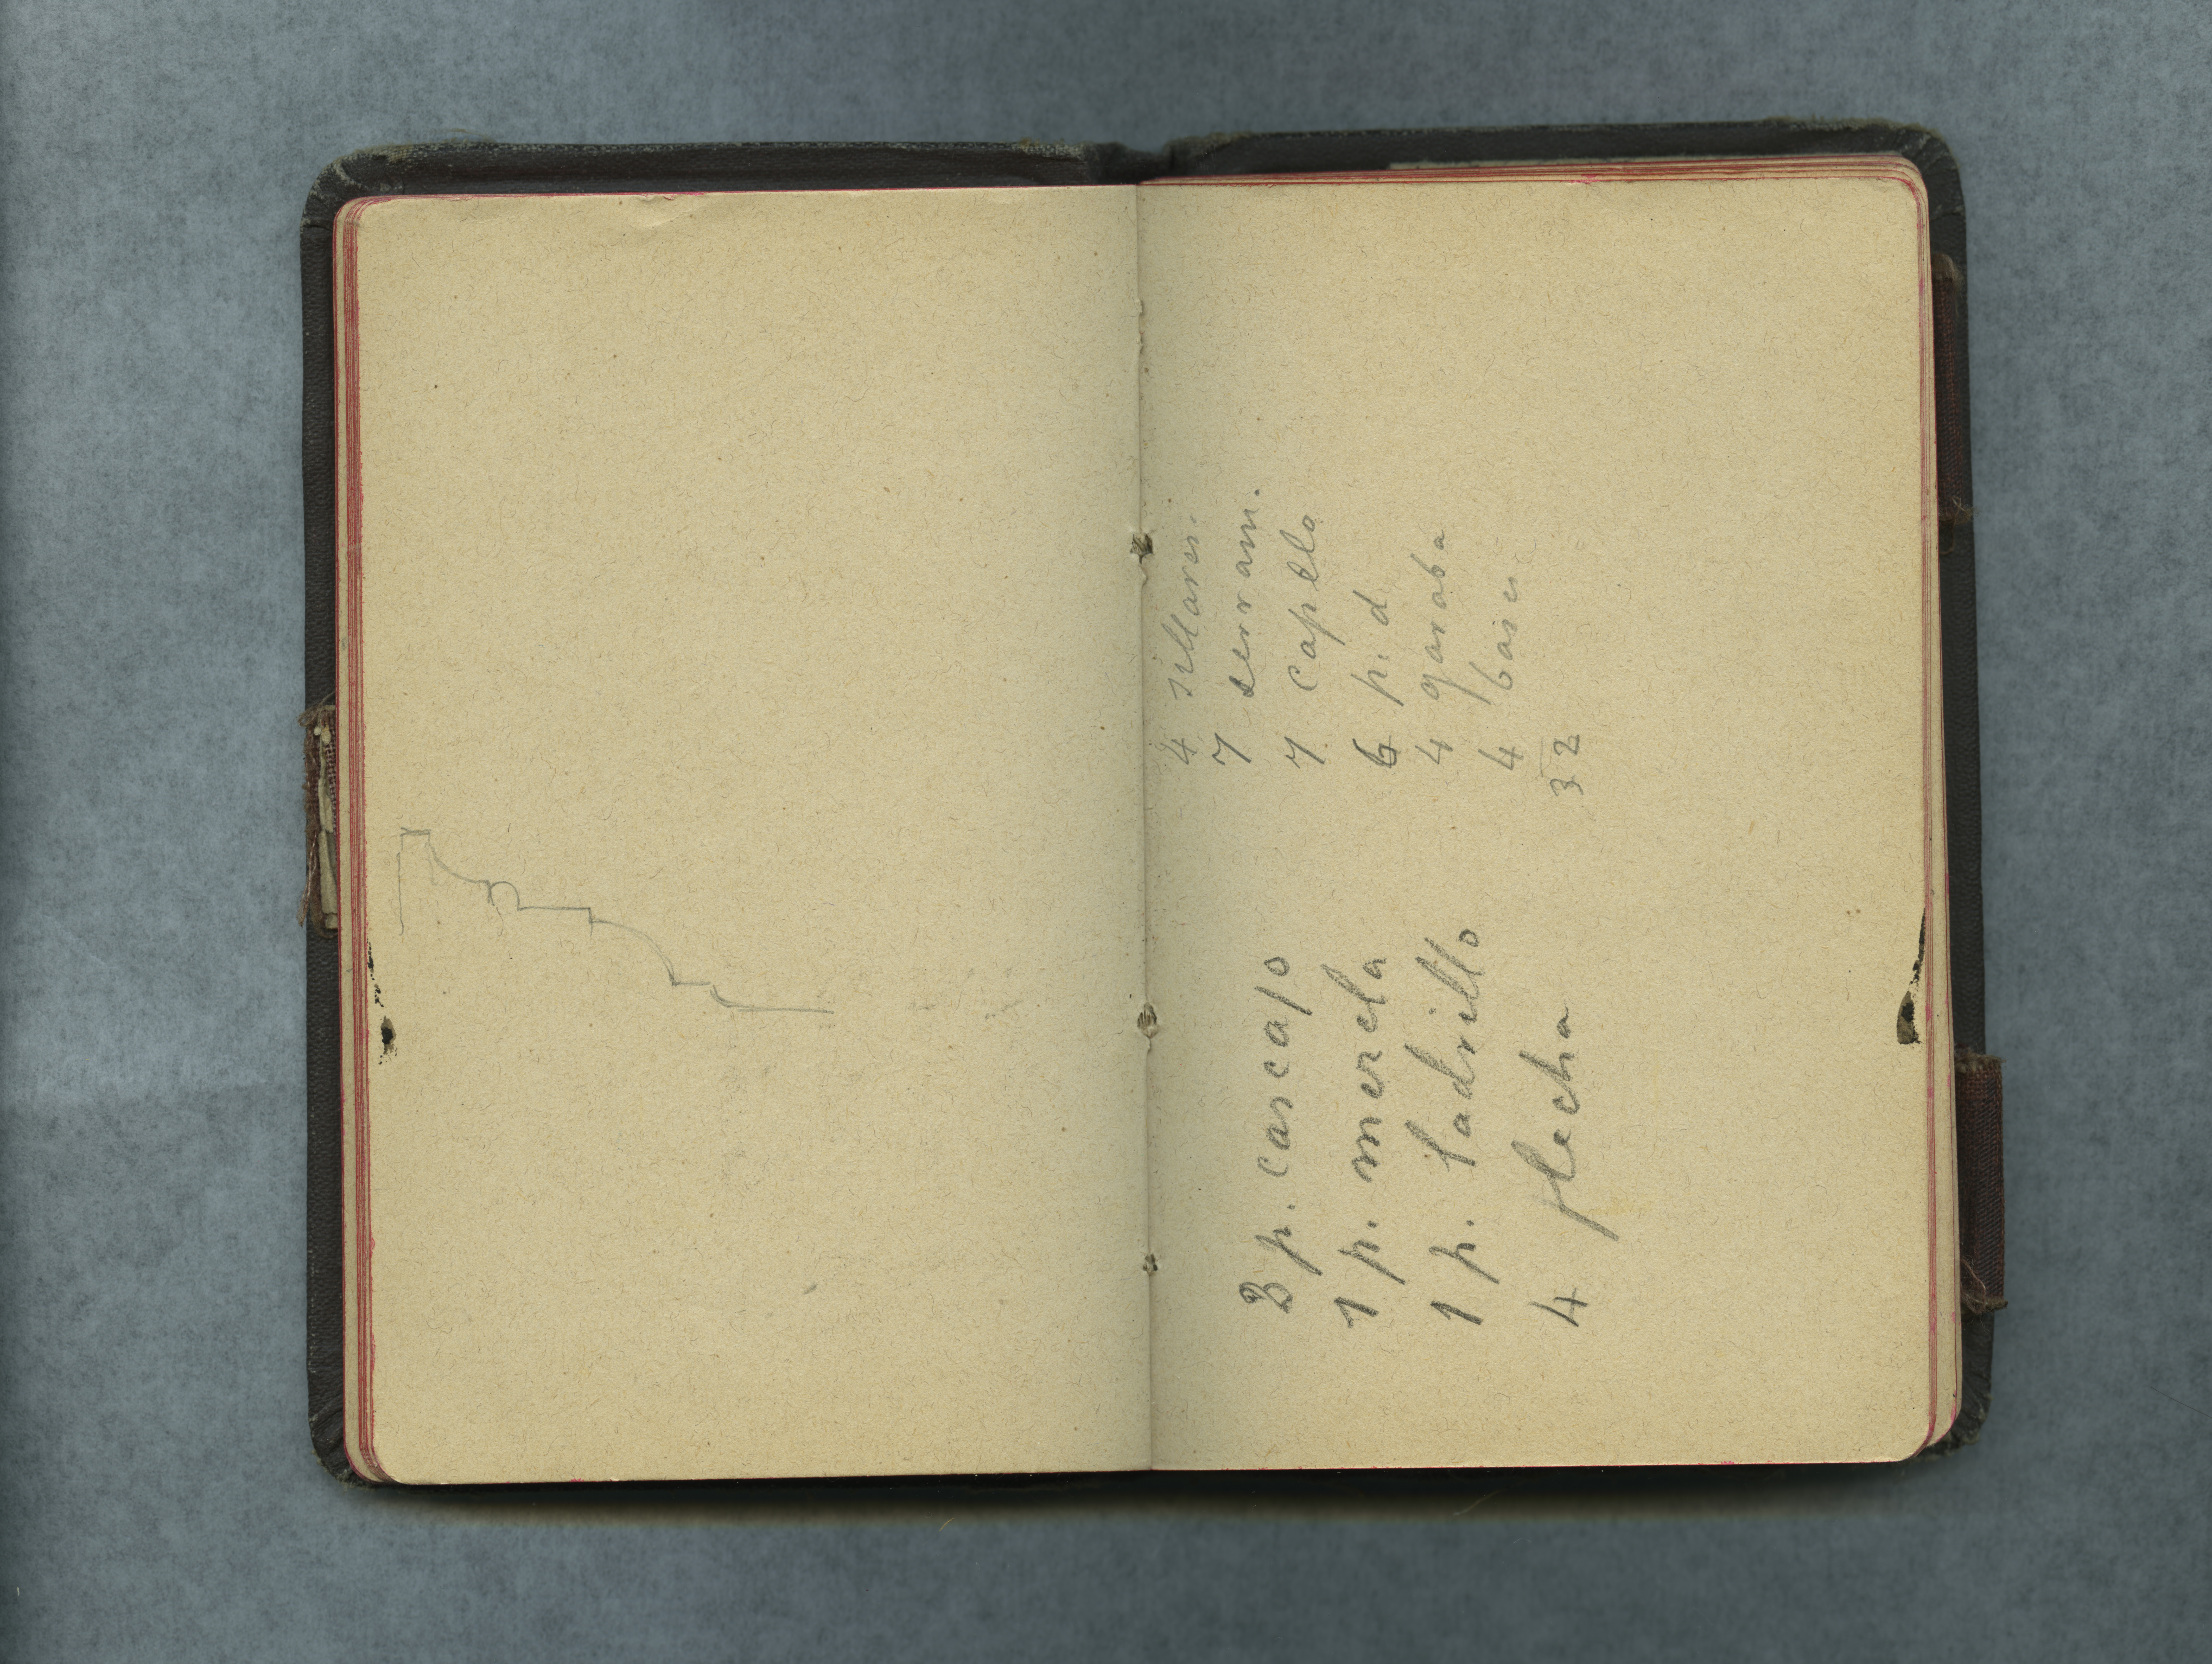 3 p. cascajo
1 p. mezcla
1 p. ladrillo
4 flecha
4 sillares.
7 serram.
7 capilla
6 p. d
4 garaba
4 bases
32